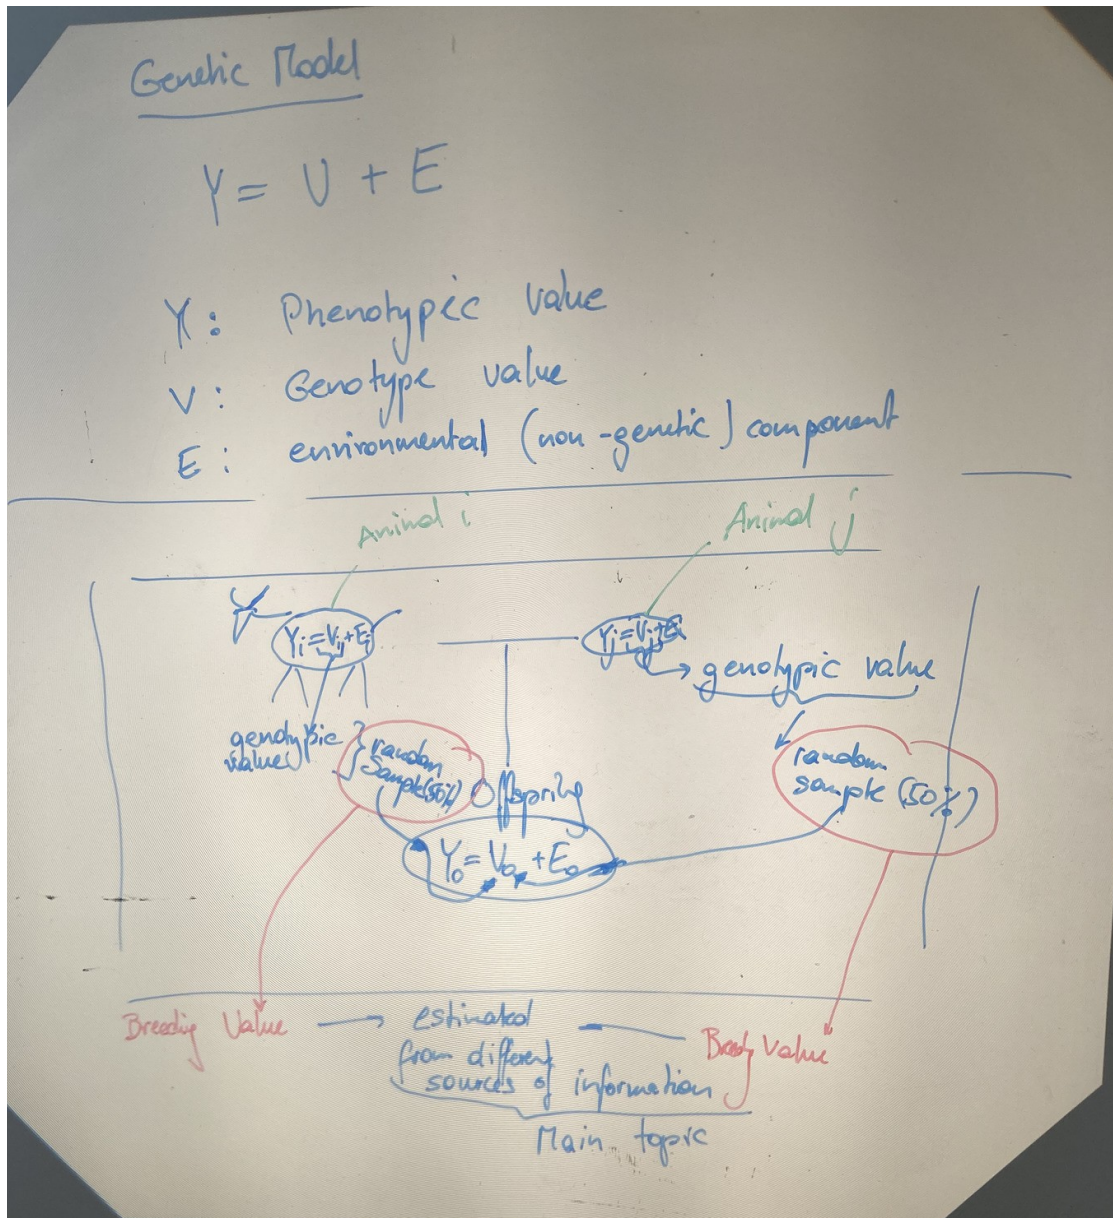 Genetic Model
Y = V + E
Y: Phenotypic value
V: Genotype value
E: environmental (non-genetic) component
Animal i
Animal j
Yi=Vi+Ei
Yj=Vj+Ej
genotypic value
genotypic
value
random
Sample(50%)
Offspring
random
sample (50%)
Yo= Vo +Eo
Breeding Value
estimated
from different
sources of information
Value
Main topic